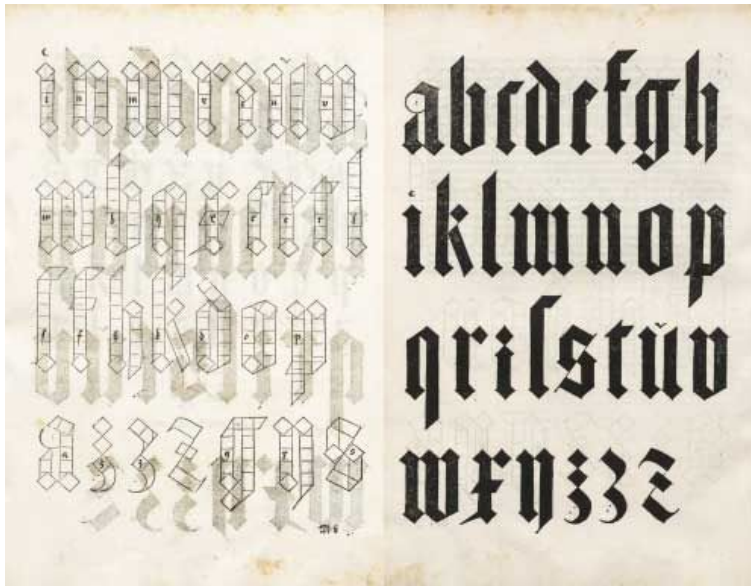 i n m r t u v
w b h x c e r l
ſ f h k d o p
a z z z g y s
abcdefgh
iklmnop
qriſstŭv
wxyzzz